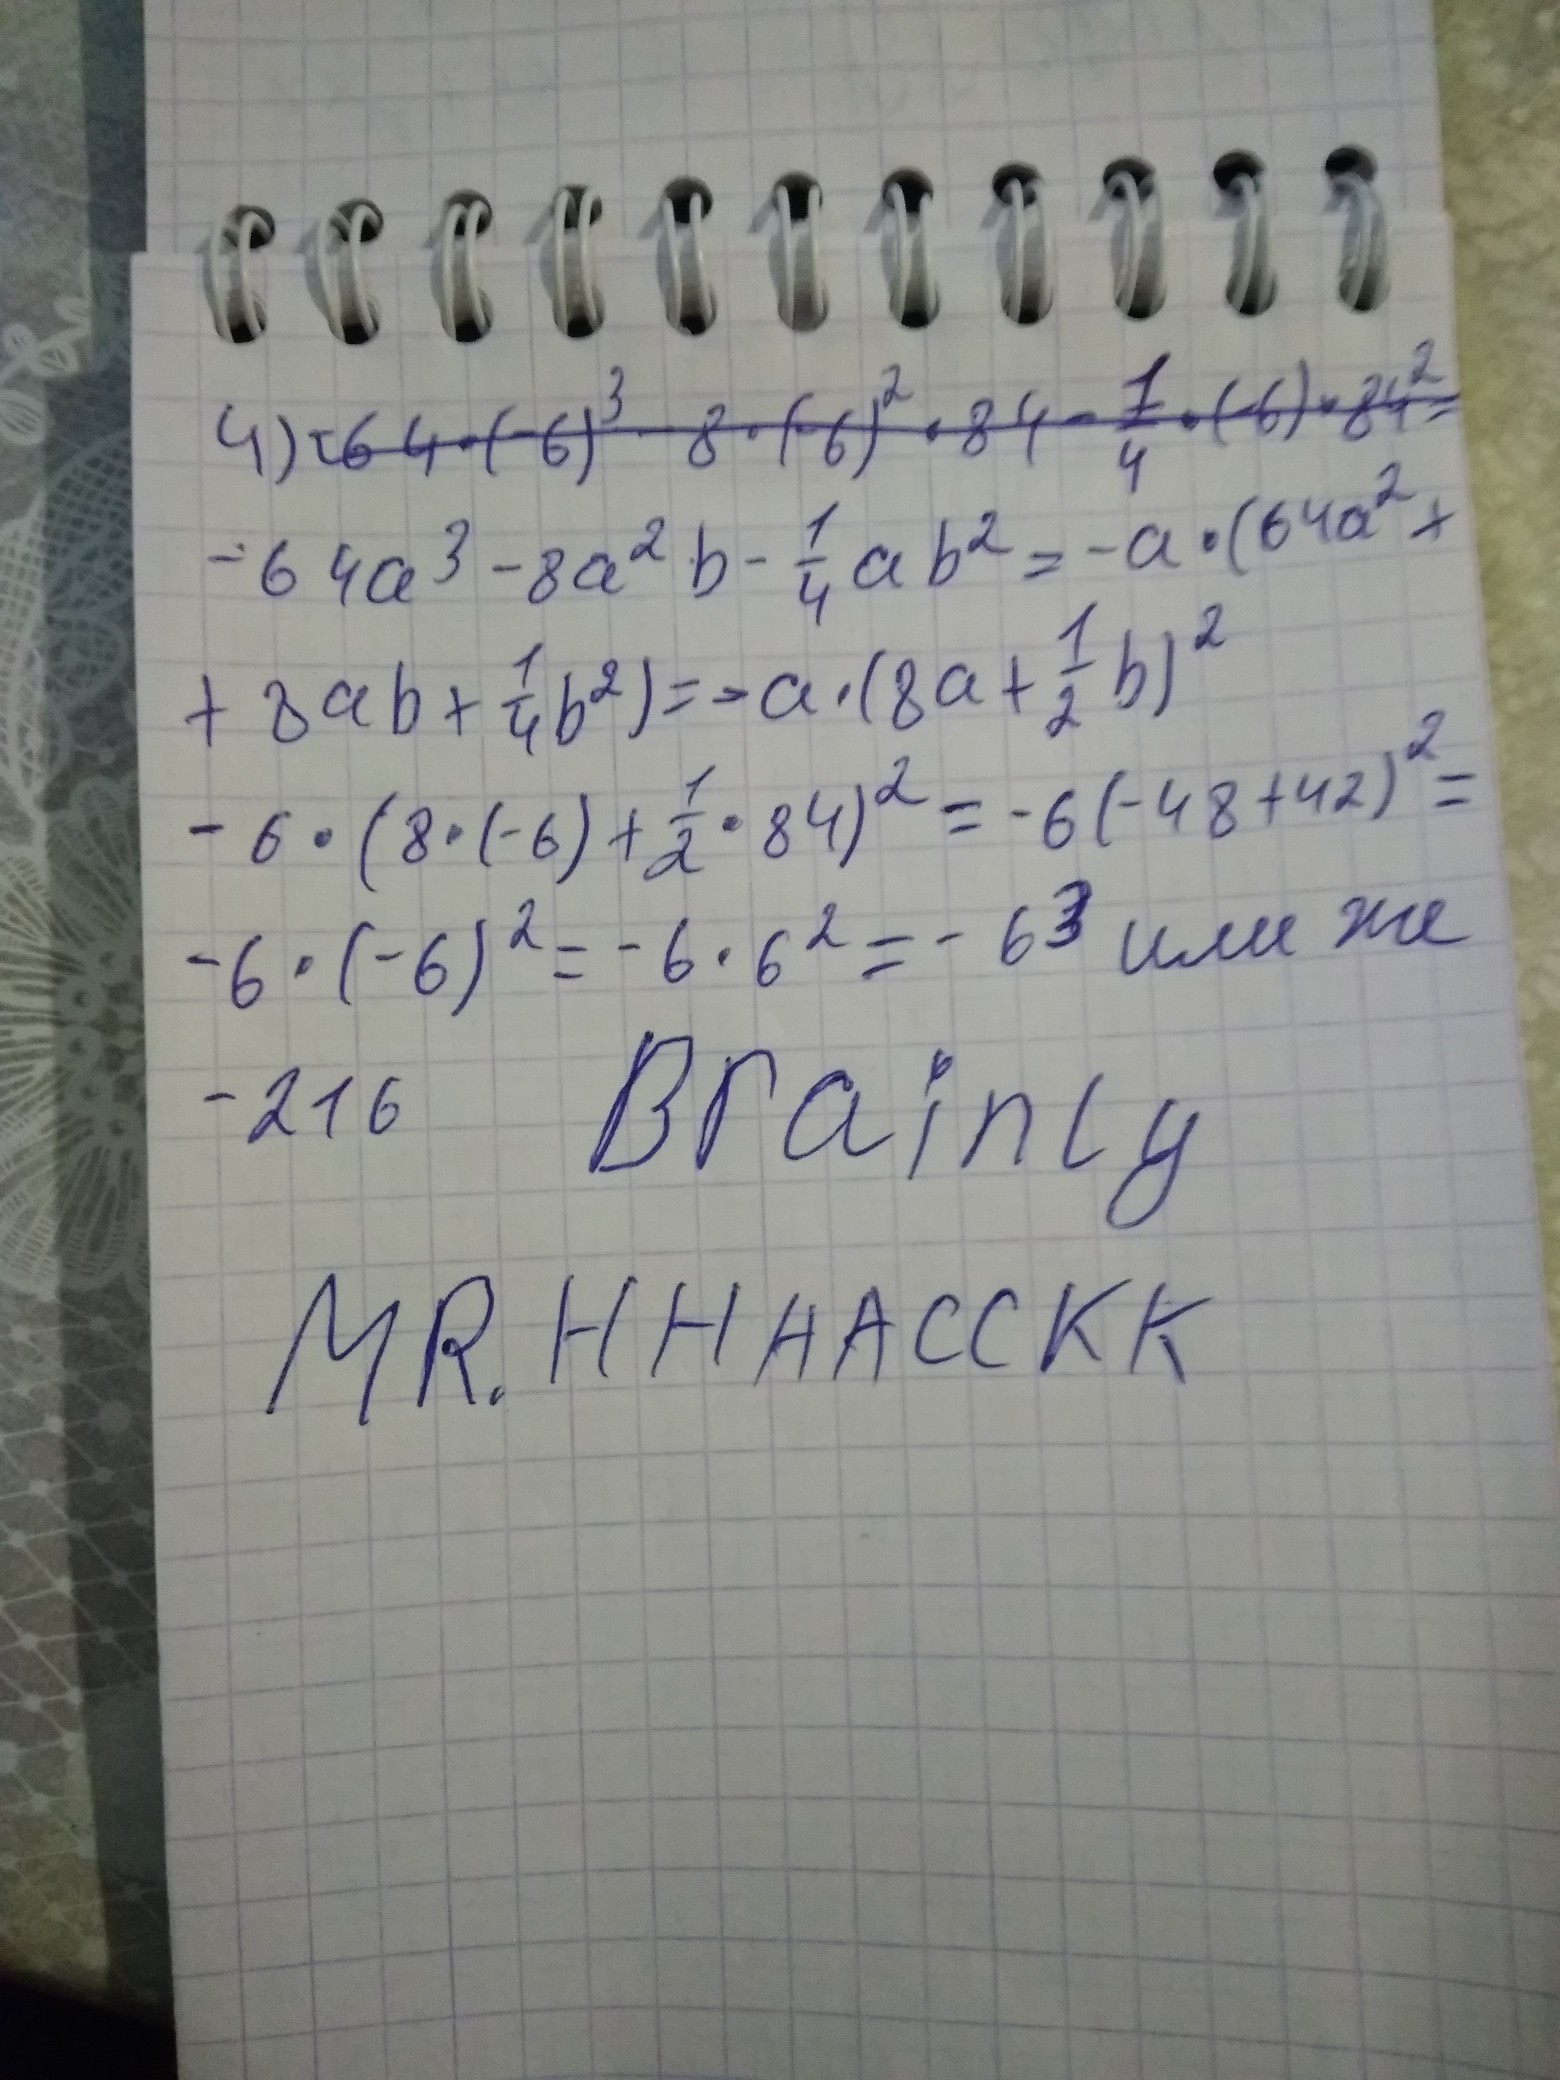 4) -64·(-6)³ - 8·(-6)²·84 - 1/4·(-6)·84² =
-64a³ - 8a²b - 1/4 ab² = -a·(64a² +
+ 8ab + 1/4 b²) = -a·(8a + 1/2 b)²
-6·(8·(-6) + 1/2·84)² = -6(-48+42)² =
-6·(-6)² = -6·6² = -6³ или же
-216 Brainly
MR. HHAACCKK